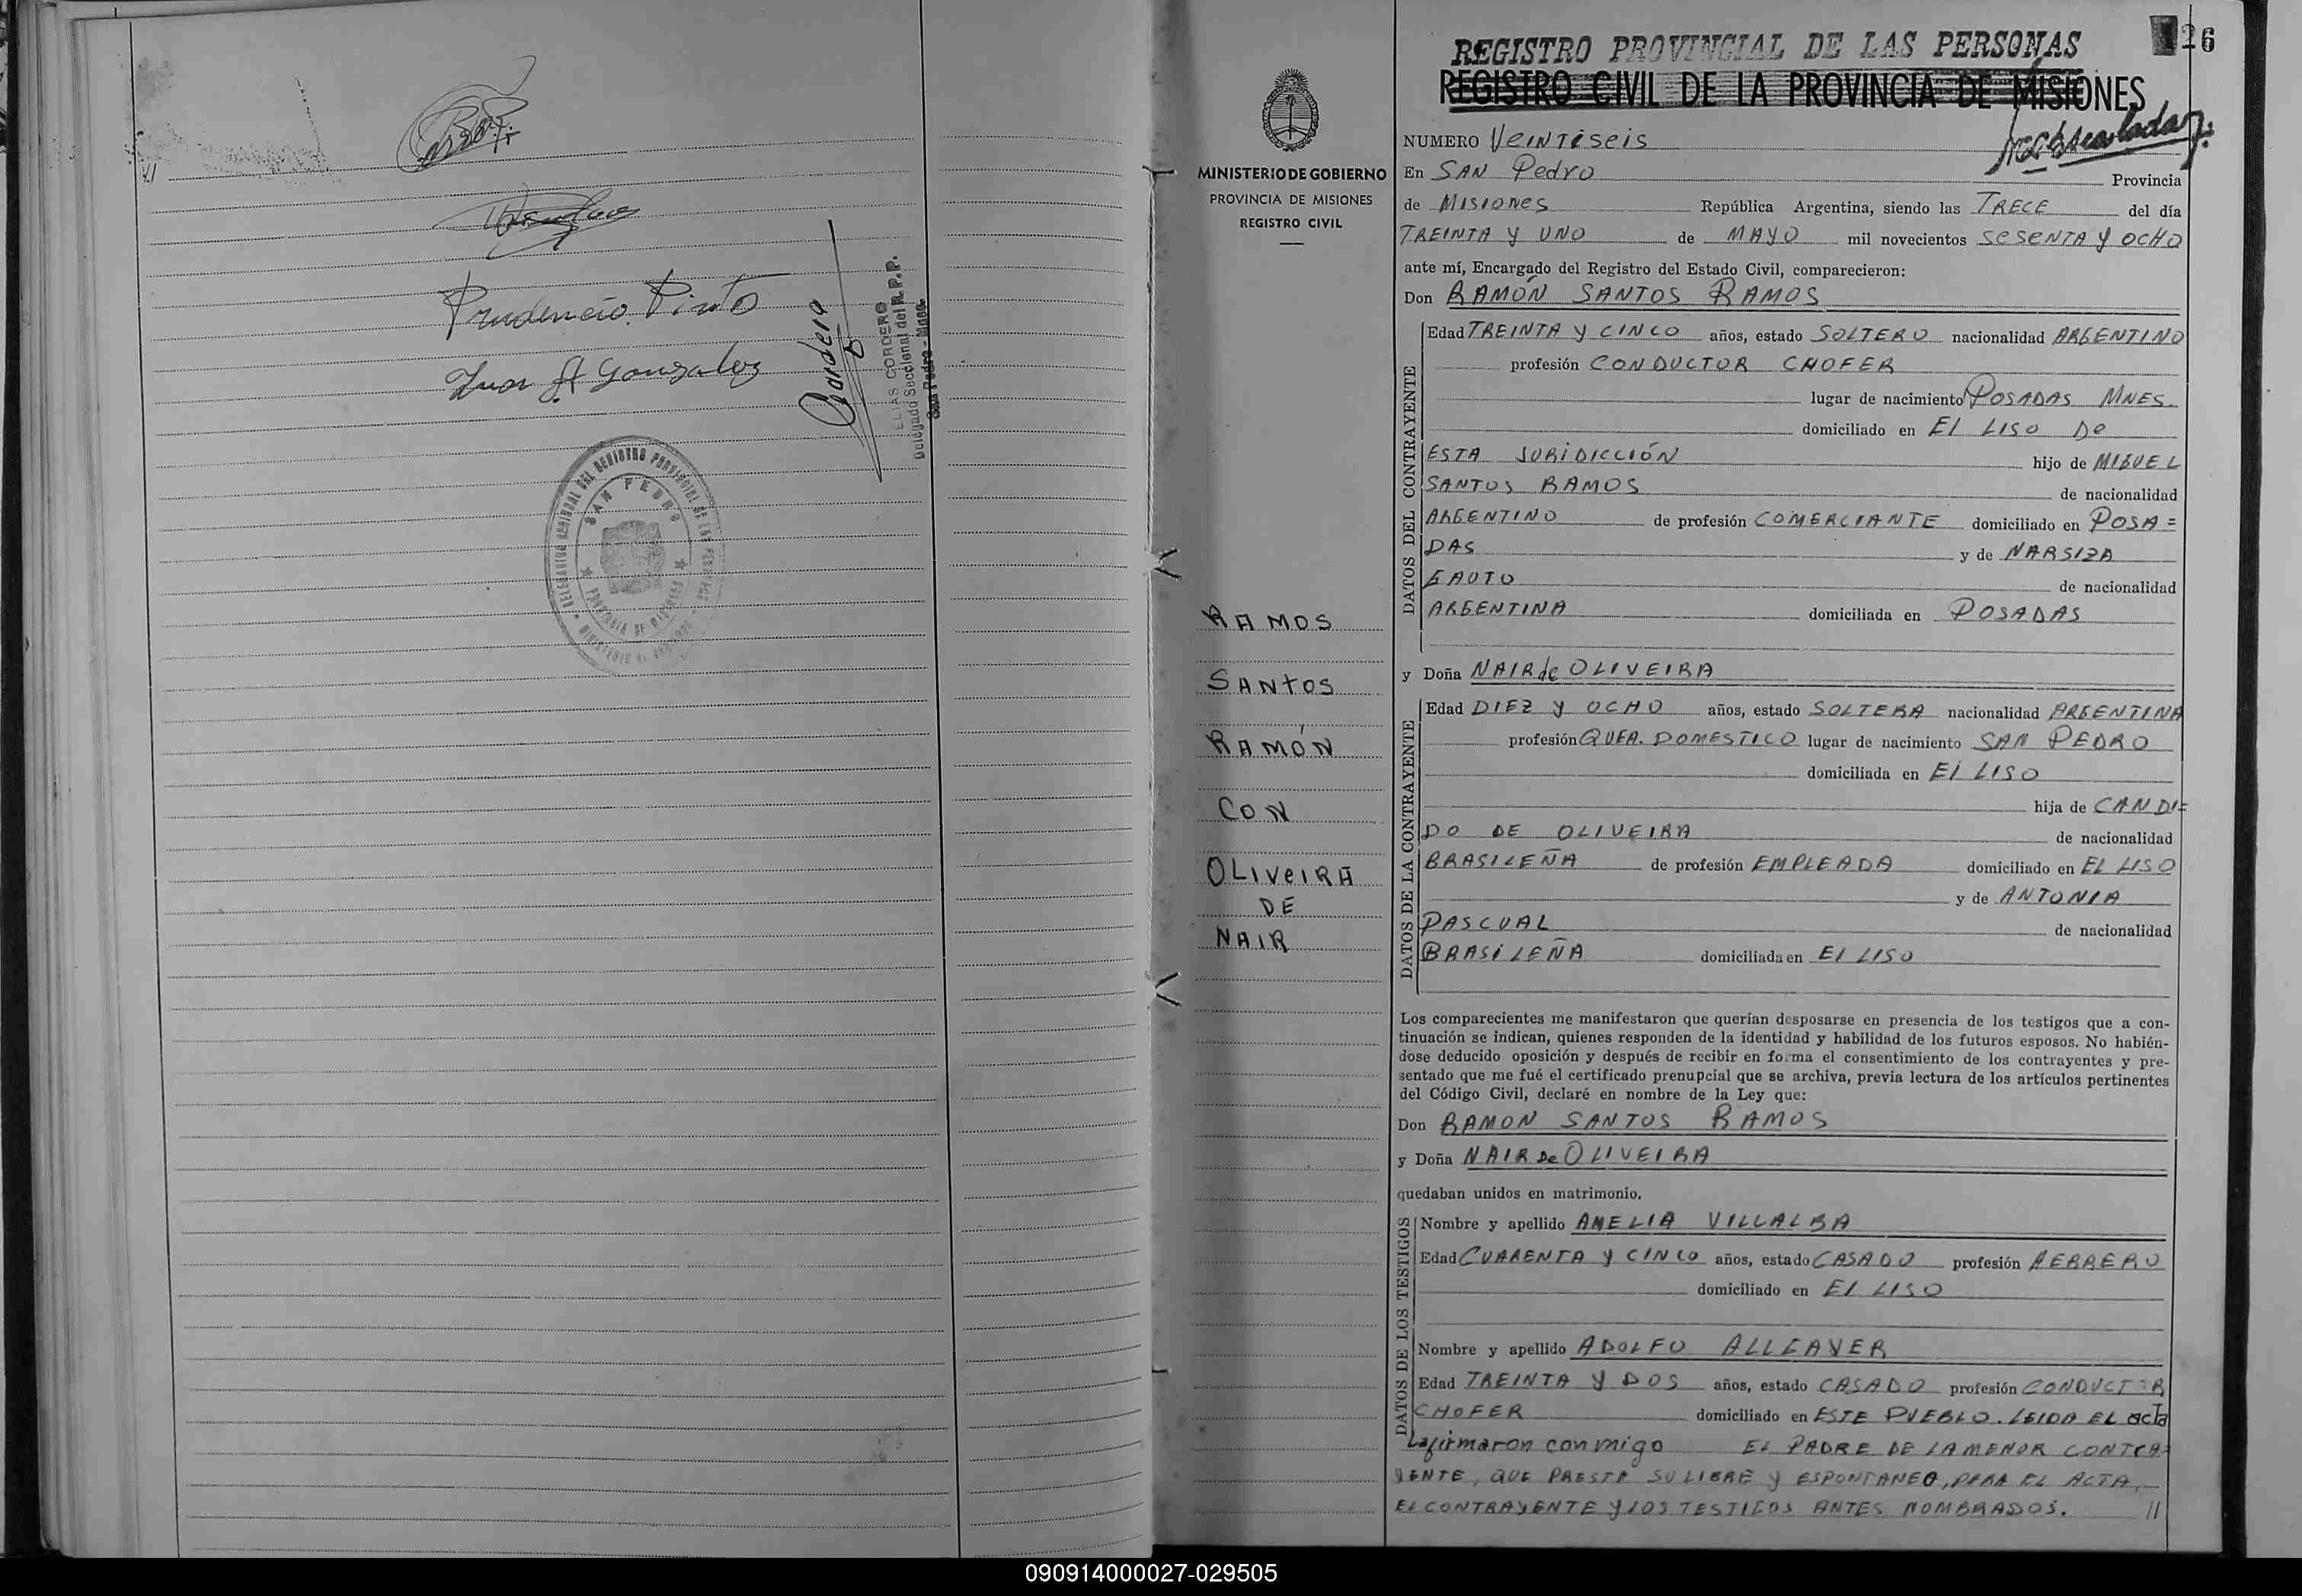 Prudencio Pinto
Juan A Gonzalez
Cordero
ELIAS CORDERO
Delegado Seccional del R.P.P.
San Pedro - Mnes.
SAN PEDRO
PROVINCIA DE MISIONES
26
REGISTRO PROVINCIAL DE LAS PERSONAS
REGISTRO CIVIL DE LA PROVINCIA DE MISIONES
MINISTERIO DE GOBIERNO
PROVINCIA DE MISIONES
REGISTRO CIVIL
RAMOS
SANTOS
RAMÓN
CON
OLIVEIRA
DE
NAIR
NUMERO VEINTISEIS
En SAN Pedro Provincia
de MISIONES República Argentina, siendo las TRECE del día
TREINTA Y UNO de MAYO mil novecientos SESENTA Y OCHO
ante mí, Encargado del Registro del Estado Civil, comparecieron:
Don RAMÓN SANTOS RAMOS
DATOS DEL CONTRAYENTE
Edad TREINTA Y CINCO años, estado SOLTERO nacionalidad ARGENTINO
profesión CONDUCTOR CHOFER
lugar de nacimiento POSADAS MNES.
domiciliado en El LISO De
ESTA JURIDICCIÓN hijo de MIGUEL
SANTOS RAMOS de nacionalidad
ARGENTINO de profesión COMERCIANTE domiciliado en POSA=
DAS y de NARSIZA
GAUTO de nacionalidad
ARGENTINA domiciliada en POSADAS
y Doña NAIR de OLIVEIRA
DATOS DE LA CONTRAYENTE
Edad DIEZ Y OCHO años, estado SOLTERA nacionalidad ARGENTINA
profesión QUEA. DOMESTICO lugar de nacimiento SAN PEDRO
domiciliada en El LISO
hija de CANDI=
DO DE OLIVEIRA de nacionalidad
BRASILEÑA de profesión EMPLEADA domiciliado en EL LISO
y de ANTONIA
PASCUAL de nacionalidad
BRASILEÑA domiciliada en El LISO
Los comparecientes me manifestaron que querían desposarse en presencia de los testigos que a con-
tinuación se indican, quienes responden de la identidad y habilidad de los futuros esposos. No habién-
dose deducido oposición y después de recibir en forma el consentimiento de los contrayentes y pre-
sentado que me fué el certificado prenupcial que se archiva, previa lectura de los artículos pertinentes
del Código Civil, declaré en nombre de la Ley que:
Don RAMON SANTOS RAMOS
y Doña NAIR De OLIVEIRA
quedaban unidos en matrimonio.
DATOS DE LOS TESTIGOS
Nombre y apellido AMELIA VILLALBA
Edad CUARENTA Y CINCO años, estado CASADO profesión HERRERO
domiciliado en El LISO
Nombre y apellido ADOLFO ALLGAYER
Edad TREINTA Y DOS años, estado CASADO profesión CONDUCTOR
CHOFER domiciliado en ESTE PUEBLO. LEIDA EL acta
La firmaron conmigo EL PADRE DE LA MENOR CONTRA=
YENTE, QUE PRESTA SU LIBRE Y ESPONTANEO, PARA EL ACTA,
EL CONTRAYENTE Y LOS TESTIGOS ANTES NOMBRADOS. //
090914000027-029505